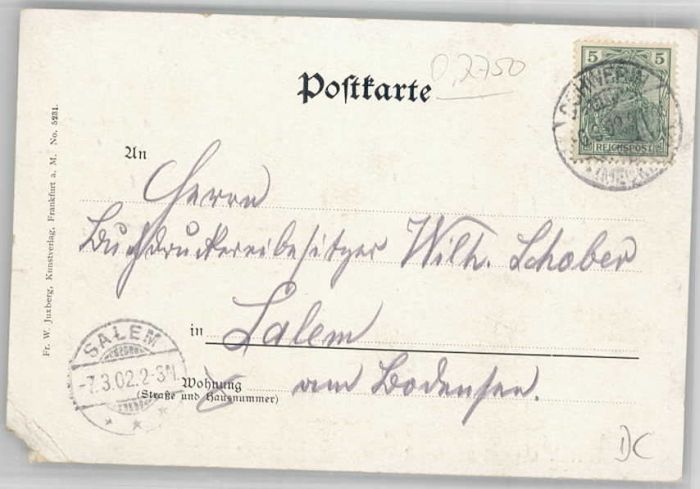 Postkarte
0,2750
5 5
REICHSPOST
SCHWERIN
An
Herrn
Buchdruckereibesitzer Wilh. Schober
in Salem
Wohnung
(Straße und Hausnummer)
am Bodensee.
SALEM
-7.3.02.2-3N.
Fr. W. Juxberg, Kunstverlag, Frankfurt a. M. No. 5231.
DC